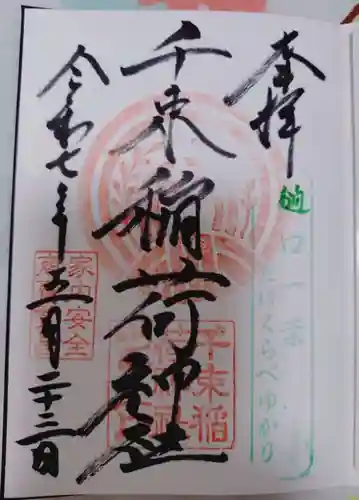 奉拝
樋口一葉
たけくらべゆかり
千束稲荷神社
千束稲
家内安全
令和七年五月二十三日